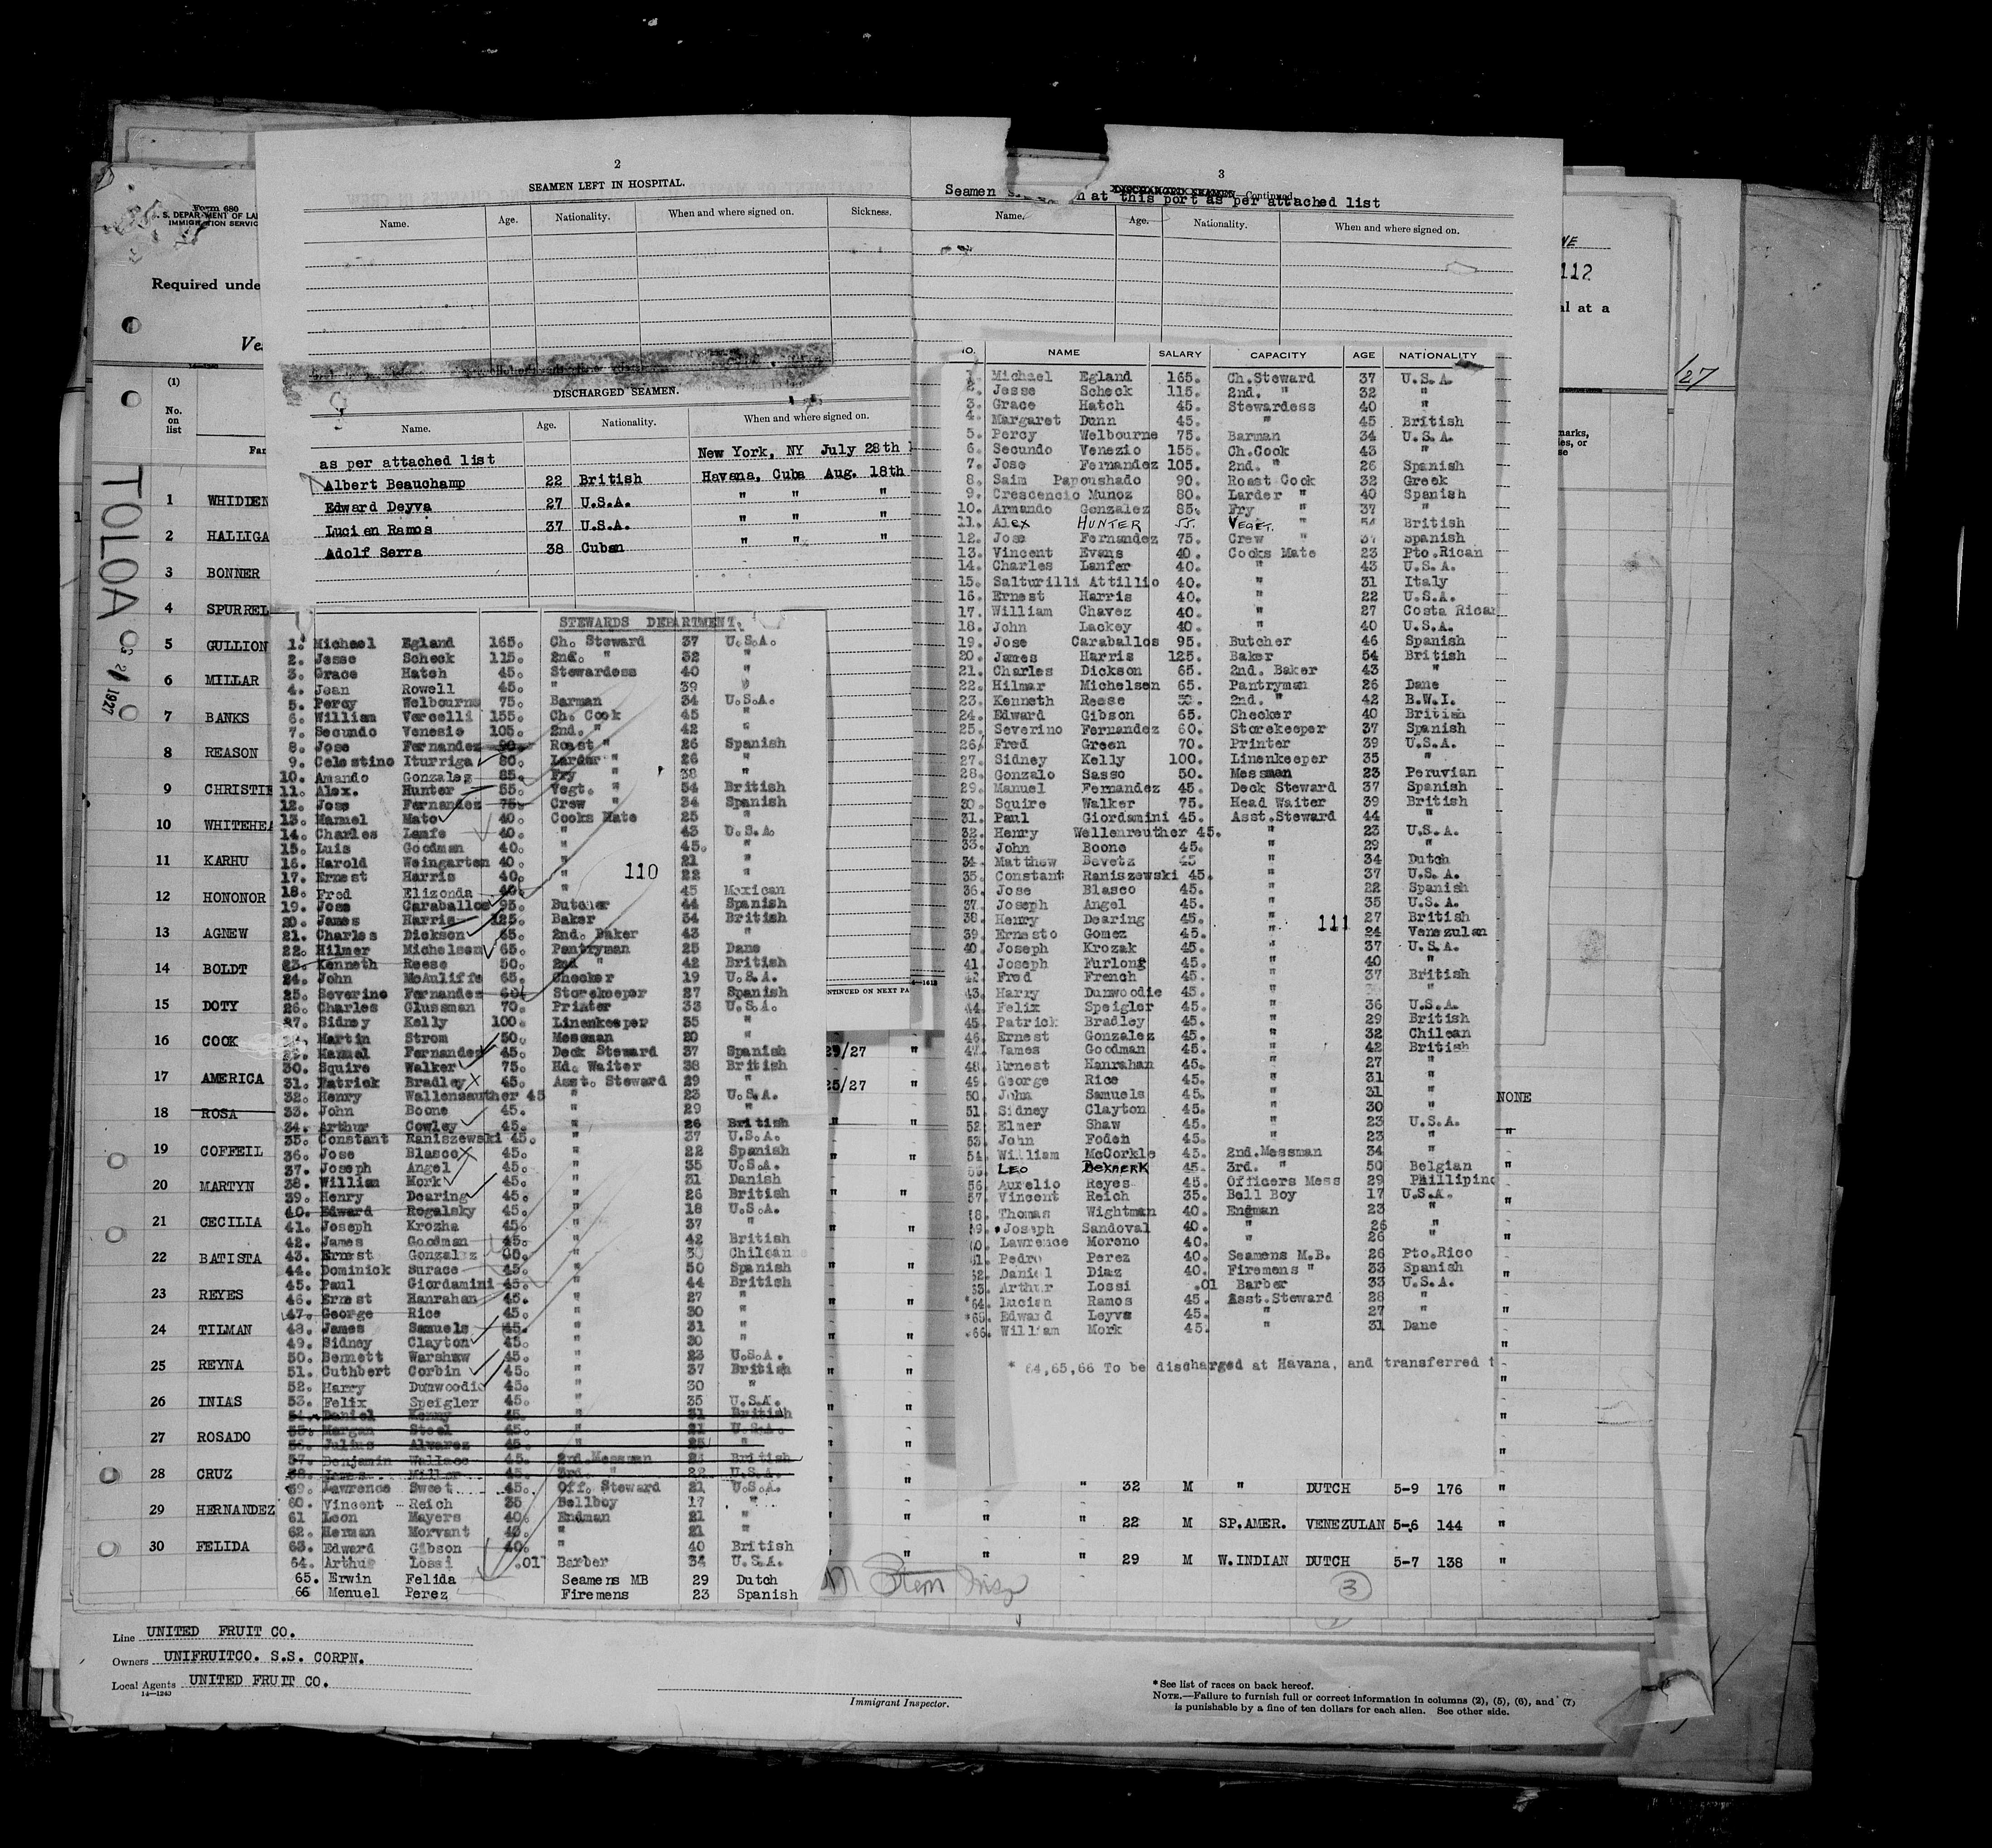 Form 680
S. DEPARTMENT OF LA
IMMIGRATION SERVIC
Required unde
Ve
(1)
No.
on
list
Far
TOLOA
1927
1 WHIDDEN
2 HALLIGA
3 BONNER
4 SPURREL
5 GULLION
6 MILLAR
7 BANKS
8 REASON
9 CHRISTIE
10 WHITEHEA
11 KARHU
12 HONONOR
13 AGNEW
14 BOLDT
15 DOTY
16 COOK
17 AMERICA
18 ROSA
19 COFFEIL
20 MARTYN
21 CECILIA
22 BATISTA
23 REYES
24 TILMAN
25 REYNA
26 INIAS
27 ROSADO
28 CRUZ
29 HERNANDEZ
30 FELIDA
2
SEAMEN LEFT IN HOSPITAL.
Name. Age. Nationality. When and where signed on. Sickness.
DISCHARGED SEAMEN.
Name. Age. Nationality. When and where signed on.
as per attached list New York, NY July 28th
Albert Beauchamp 22 British Havana, Cuba Aug. 18th
Edward Deyva 27 U.S.A. " " "
Lucien Ramos 37 U.S.A. " " "
Adolf Serra 38 Cuban " " "
STEWARDS DEPARTMENT.
1. Michael Egland 165. Ch. Steward 37 U.S.A.
2. Jesse Scheck 115. 2nd. " 32 "
3. Grace Hatch 45. Stewardess 40 "
4. Jean Rowell 45. " 39 "
5. Percy Welbourne 75. Barman 34 U.S.A.
6. William Vercelli 155. Ch. Cook 45 "
7. Secundo Venesio 105. 2nd. " 42 "
8. Jose Fernandez 90. Roast " 26 Spanish
9. Celestino Iturriga 80. Larder " 26 "
10. Amando Gonzales 85. Fry " 38 "
11. Alex. Hunter 55. Vegt. " 54 British
12. Jose Fernandez 75. Crew " 34 Spanish
13. Manuel Mato 40. Cooks Mate 25 "
14. Charles Lamfe 40. " 43 U.S.A.
15. Luis Goodman 40. " 45. "
16. Harold Weingarten 40. " 21 "
17. Ernest Harris 40. " 22 "
110
18. Fred Elizonda 40. " 45 Mexican
19. Jose Caraballos 95. Butcher 44 Spanish
20. James Harris 125. Baker 54 British
21. Charles Dickson 65. 2nd. Baker 43 "
22. Hilmer Michelsen 65. Pantryman 25 Dane
23. Kenneth Reese 50. 2nd " 42 British
24. John McAuliffe 65. Checker 19 U.S.A.
25. Severino Fernandez 60. Storekeeper 27 Spanish
26. Charles Glussman 70. Printer 33 U.S.A.
27. Sidney Kelly 100. Linenkeeper 35 "
Martin Strom 50. Messman 20 "
29. Manuel Fernandez 45. Deck Steward 37 Spanish
30. Squire Walker 75. Hd. Waiter 38 British
31. Patrick Bradley 45. Asst. Steward 29 "
32. Henry Wallensauther 45 " 23 U.S.A.
33. John Boone 45. " 29 "
34. Arthur Cowley 45. " 26 British
35. Constant Raniszewski 45. " 37 U.S.A.
36. Jose Blasco 45. " 22 Spanish
37. Joseph Angel 45. " 35 U.S.A.
38. William Mork 45. " 31 Danish
39. Henry Dearing 45. " 26 British
40. Edward Rogalsky 45. " 18 U.S.A.
41. Joseph Krozha 45. " 37 "
42. James Goodman 45. " 42 British
43. Ernest Gonzalez 45. " 30 Chilean
44. Dominick Surace 45. " 50 Spanish
45. Paul Giordamini 45. " 44 British
46. Ernest Hanrahan 45. " 27 "
47. George Rice 45. " 30 "
48. James Samuels 45. " 31 "
49. Sidney Clayton 45. " 30 "
50. Bennett Warshaw 45. " 23 U.S.A.
51. Cuthbert Corbin 45. " 37 British
52. Harry Dunwoodie 45. " 30 "
53. Felix Speigler 45. " 35 U.S.A.
54. Daniel Kenny 45. " 31 British
55. Morgan Steel 45. " 21 U.S.A.
56. Julius Alvarez 45. " 25 "
57. Benjamin Wallace 45. 2nd.Messman 23 British
58. James Miller 45. 3rd. " 22 U.S.A.
59. Lawrence Sweet 45. Off. Steward 21 U.S.A.
60. Vincent Reich 35 Bellboy 17 "
61 Leon Mayers 40. Endman 21 "
62. Herman Morvant 40. " 21 "
63. Edward Gibson 40. " 40 British
64. Arthur Lossi .01 Barber 34 U.S.A.
65. Erwin Felida Seamens MB 29 Dutch
66 Menuel Perez Firemens 23 Spanish
3
Seamen at this port as per attached list
DISCHARGED SEAMEN—Continued
Name. Age. Nationality. When and where signed on.
NO. NAME SALARY CAPACITY AGE NATIONALITY
1. Michael Egland 165. Ch.Steward 37 U.S.A.
2. Jesse Scheck 115. 2nd. " 32 "
3. Grace Hatch 45. Stewardess 40 "
4. Margaret Dunn 45. " 45 British
5. Percy Welbourne 75. Barman 34 U.S.A.
6. Secundo Venezio 155. Ch.Cook 43 "
7. Jose Fernandez 105. 2nd. " 26 Spanish
8. Saim Papoushado 90. Roast Cook 32 Greek
9. Crescencio Munoz 80. Larder " 40 Spanish
10. Armando Gonzalez 85. Fry " 37 "
11. Alex HUNTER 55. VEGET. " 54 British
12. Jose Fernandez 75. Crew " 37 Spanish
13. Vincent Evans 40. Cooks Mate 23 Pto.Rican
14. Charles Lanfer 40. " 43 U.S.A.
15. Salturilli Attillio 40. " 31 Italy
16. Ernest Harris 40. " 22 U.S.A.
17. William Chavez 40. " 27 Costa Rican
18. John Lackey 40. " 40 U.S.A.
19. Jose Caraballos 95. Butcher 46 Spanish
20. James Harris 125. Baker 54 British
21. Charles Dickson 65. 2nd. Baker 43 "
22. Hilmar Michelsen 65. Pantryman 26 Dane
23. Kenneth Reese 50. 2nd. " 42 B.W.I.
24. Edward Gibson 65. Checker 40 British
25. Severino Fernandez 60. Storekeeper 37 Spanish
26. Fred Green 70. Printer 39 U.S.A.
27. Sidney Kelly 100. Linenkeeper 35 "
28. Gonzalo Sasso 50. Messman 23 Peruvian
29. Manuel Fernandez 45. Deck Steward 37 Spanish
30. Squire Walker 75. Head Waiter 39 British
31. Paul Giordamini 45. Asst.Steward 44 "
32. Henry Wellenreuther 45. " 23 U.S.A.
33. John Boone 45. " 29 "
34. Matthew Bevetz 45 " 34 Dutch
35. Constant Raniszewski 45. " 37 U.S.A.
36. Jose Blasco 45. " 22 Spanish
37. Joseph Angel 45. " 35 U.S.A.
38. Henry Dearing 45. " 27 British
111
39. Ernesto Gomez 45. " 24 Venezulan
40. Joseph Krozak 45. " 37 U.S.A.
41. Joseph Furlong 45. " 40 "
42. Fred French 45. " 37 British
43. Harry Dunwoodie 45. " "
44. Felix Speigler 45. " 36 U.S.A.
45. Patrick Bradley 45. " 29 British
46. Ernest Gonzalez 45. " 32 Chilean
47. James Goodman 45. " 42 British
48. Ernest Hanrahan 45. " 27 "
49. George Rice 45. " 31 "
50. John Samuels 45. " 31 "
51. Sidney Clayton 45. " 30 "
52. Elmer Shaw 45. " 23 U.S.A.
53. John Fodeh 45. " 23 "
54. William McCorkle 45. 2nd.Messman 34 "
55. LEO 45. 3rd. " 50 Belgian
56. Aurelio Reyes 45. Officers Mess 29 Phillipino
57. Vincent Reich 35. Bell Boy 17 U.S.A.
58. Thomas Wightman 40. Endman 23 "
59. Joseph Sandoval 40. " 26 "
60. Lawrence Moreno 40. " 26 "
61. Pedro Perez 40. Seamens M.B. 26 Pto.Rico
62. Daniel Diaz 40. Firemens " 33 Spanish
63. Arthur Lossi .01 Barber 33 U.S.A.
*64. Lucian Ramos 45. Asst.Steward 28 "
*65. Edward Leyva 45. " 27 "
*66. William Mork 45. " 31 Dane
* 64,65,66 To be discharged at Havana, and transferred t
112
al at a
marks,
es, or
se
/27
4-161B
NTINUED ON NEXT PA
29/27 "
25/27 "
NONE
" 32 M " DUTCH 5-9 176 "
" " " 22 M SP.AMER. VENEZULAN 5-6 144 "
" " " 29 M W.INDIAN DUTCH 5-7 138 "
3
Line UNITED FRUIT CO.
Owners UNIFRUITCO. S.S. CORPN.
Local Agents UNITED FRUIT CO.
14—1243
Immigrant Inspector.
*See list of races on back hereof.
NOTE.—Failure to furnish full or correct information in columns (2), (5), (6), and (7)
is punishable by a fine of ten dollars for each alien. See other side.